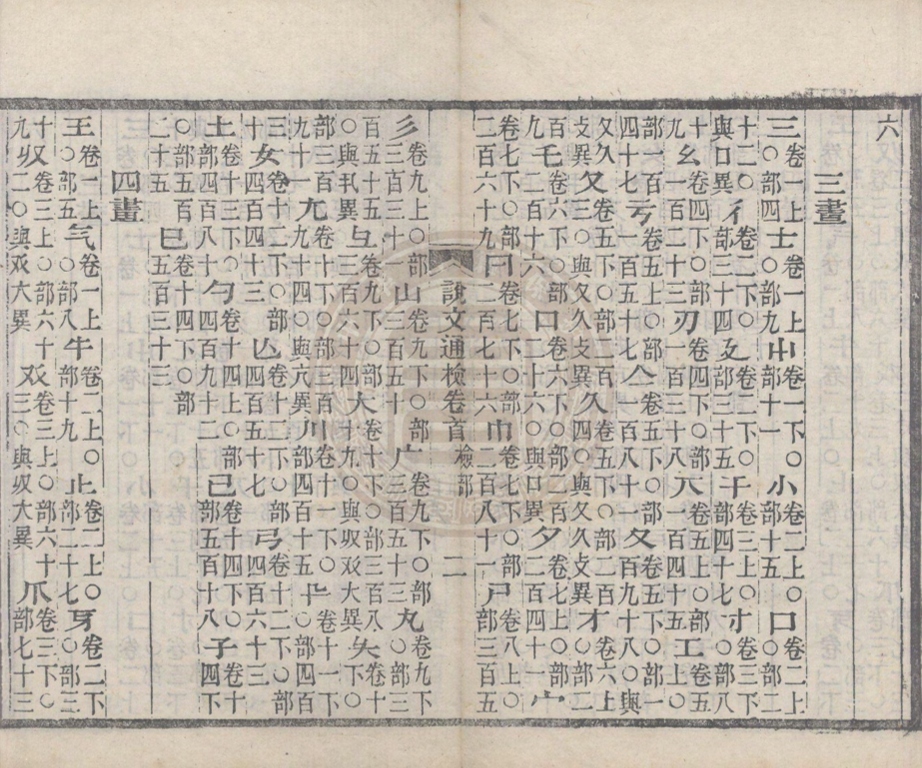 六
三畫
三卷一上○部四士卷一上○部九屮卷一下○部十一小卷二上○部十五口卷二上○部二
十二○與囗異彳卷二下○部三十四廴卷二下○部三十五干卷三上○部四十七寸卷三下○部八
十九幺卷四下○部一百二十三刃卷四下○部一百三十八丌卷五上○部一百四十五工卷五上○
部一百四十七亏卷五上○部一百五十七亼卷五下○部一百八十一夂卷五下○部一百九十八○與
夊久攴異夊卷五下○部二百三○與夂久攴異久卷五下○部二百四○與夂夊攴異才卷六上○部二
百八乇卷六下○部二百十六囗卷六下○部二百二十六○與口異夕卷七上○部二百四十一宀
卷七下○部二百六十九𠔼卷七下○部二百七十六巾卷七下○部二百八十一尸卷八上○部三百五
說文通檢卷首 檢部 二
彡卷九上○部三百三十山卷九下○部三百五十广卷九下○部三百五十三丸卷九下○部三
百五十五○與丮異彑卷九下○部三百六十四大卷十下○部三百八十九○與𠬞𠬜大異夨卷十下○
部三百九十一尢卷十下○部三百九十四○與亢異川卷十一下○部四百十五卂卷十一下○部四百
三十女卷十二下○部四百四十三亾卷十二下○部四百五十七弓卷十二下○部四百六十三
土卷十三下○部四百八十勺卷十四上○部四百九十二己卷十四下○部五百十八子卷十四下
○部五百二十五巳卷十四下○部五百三十三
四畫
王卷一上○部五气卷一上○部八牛卷二上○部十九止卷二上○部二十七牙卷二下○部三
十九𠬞卷三上○部六十二○與𠬜大異𠬜卷三上○部六十三○與𠬞大異爪卷三下○部七十三